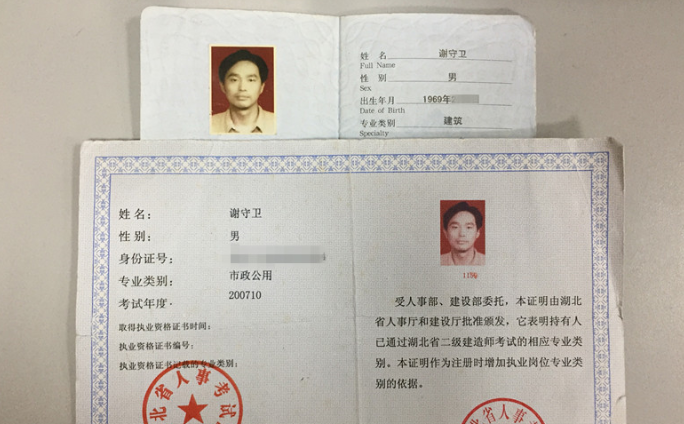 姓 名 谢守卫
Full Name
性 别 男
Sex
出生年月 1969年
Date of Birth
专业类别 建筑
Specialty
姓名： 谢守卫
性别： 男
身份证号：
专业类别： 市政公用
考试年度： 200710
取得执业资格证书时间：
执业资格证书编号：
执业资格证书记载的专业类别：
受人事部、建设部委托，本证明由湖北
省人事厅和建设厅批准颁发，它表明持有人
已通过湖北省二级建造师考试的相应专业类
别。本证明作为注册时增加执业岗位专业类
别的依据。
北省人事考试
北省人事